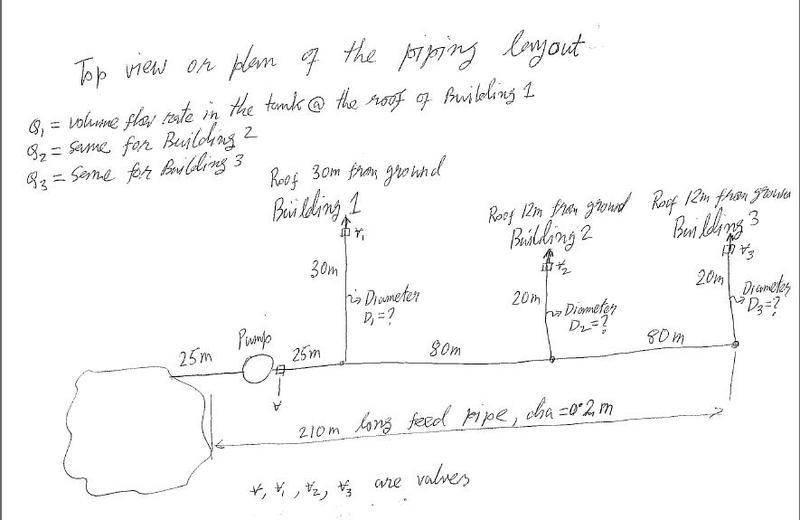 Top view or plan of the piping layout
Q₁ = volume flow rate in the tank @ the roof of Building 1
Q₂ = same for Building 2
Q₃ = Same for Building 3
Roof 30m from ground
Building 1
Roof 12m from ground
Building 2
Roof 12m from ground
Building 3
V₁
V₂
V₃
30m
20m
20m
Diameter
D₁=?
Diameter
D₂=?
Diameter
D₃=?
Pump
25m
25m
80m
80m
V
210m long feed pipe, dia=0.2m
V, V₁, V₂, V₃ are valves